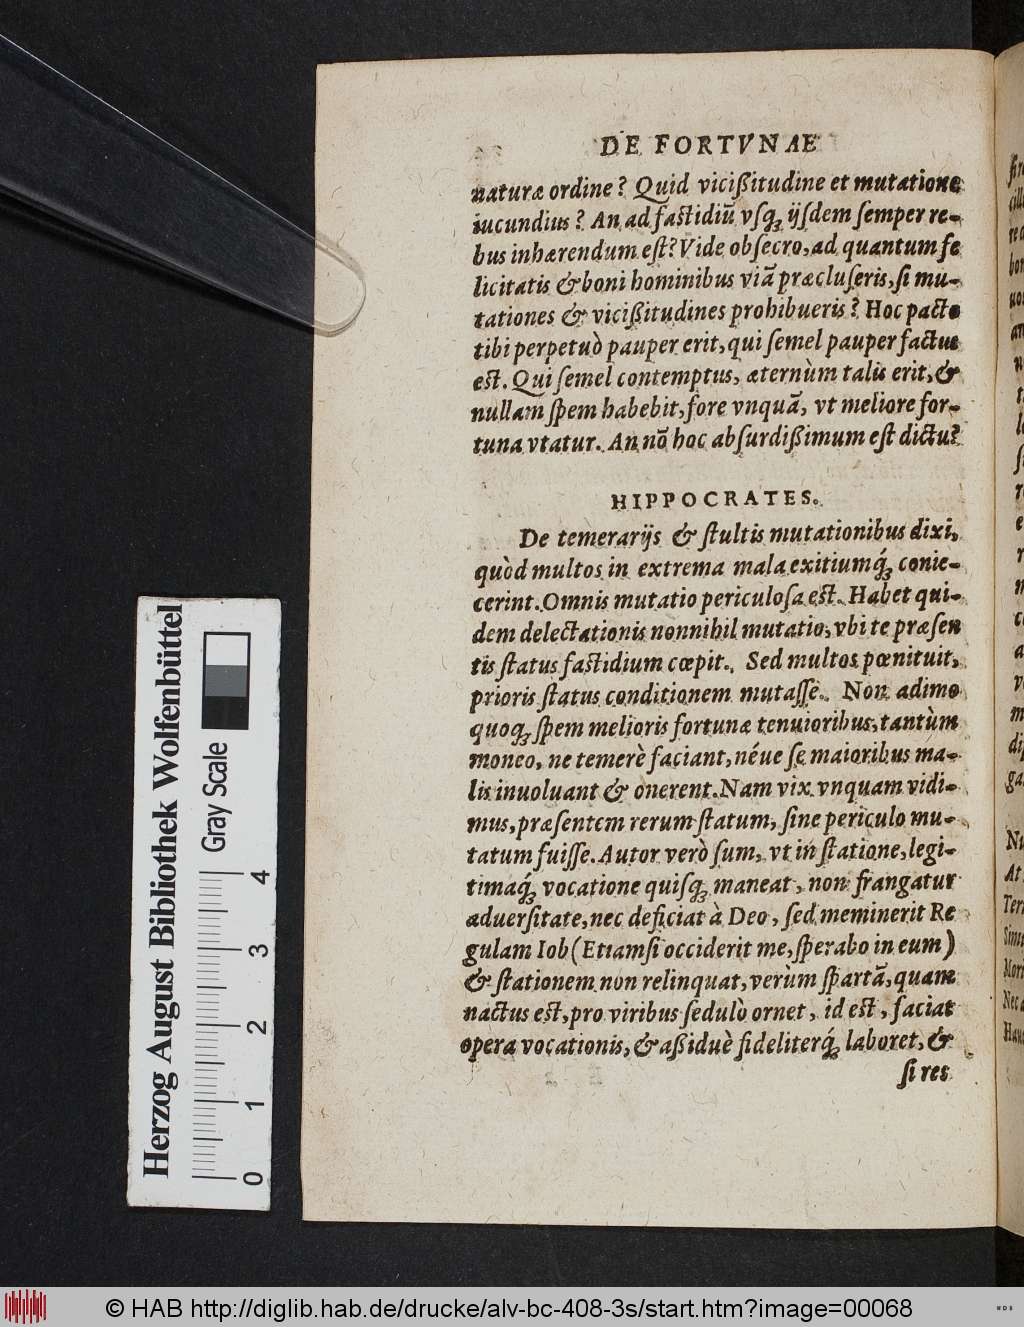 DE FORTVNAE
naturæ ordine? Quid vicißitudine et mutatione
iucundius? An ad fastidiũ vſqꝫ ijſdem ſemper re-
bus inhærendum eſt? Vide obſecro, ad quantum fe
licitatis & boni hominibus viã præcluſeris, ſi mu-
tationes & vicißitudines prohibueris? Hoc pacto
tibi perpetuò pauper erit, qui ſemel pauper factus
eſt. Qui ſemel contemptus, æternùm talis erit, &
nullam ſpem habebit, fore vnquã, vt meliore for-
tuna vtatur. An nõ hoc abſurdißimum eſt dictu?
HIPPOCRATES.
De temerarijs & ſtultis mutationibus dixi,
quòd multos in extrema mala exitiumq́ꝫ conie-
cerint. Omnis mutatio periculoſa eſt. Habet qui-
dem delectationis nonnihil mutatio, vbi te præſen
tis ſtatus faſtidium cœpit. Sed multos pœnituit,
prioris ſtatus conditionem mutaſſe. Non adimo
quoqꝫ ſpem melioris fortunæ tenuioribus, tantùm
moneo, ne temerè faciant, néue ſe maioribus ma-
lis inuoluant & onerent. Nam vix vnquam vidi-
mus, præſentem rerum ſtatum, ſine periculo mu-
tatum fuiſſe. Autor verò ſum, vt in ſtatione, legi-
timaq́ꝫ vocatione quiſqꝫ maneat, non frangatur
aduerſitate, nec deficiat à Deo, ſed meminerit Re
gulam Iob (Etiamſi occiderit me, ſperabo in eum)
& ſtationem non relinquat, verùm ſpartã, quam
nactus eſt, pro viribus ſedulò ornet, id eſt, faciat
opera vocationis, & aßiduè fideliterq́ꝫ laboret, &
ſi res
Herzog August Bibliothek Wolfenbüttel
Gray Scale
0 1 2 3 4
© HAB http://diglib.hab.de/drucke/alv-bc-408-3s/start.htm?image=00068